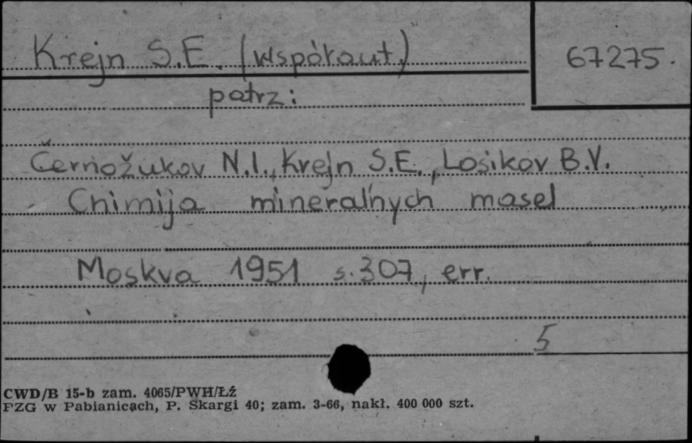 Krejn S.E. (współaut.)
67275.
patrz:
Černožukov N.I., Krejn S.E., Losikov B.V.
Chimija mineral'nych masel
Moskva 1951 s. 307, err.
5
CWD/B 15-b zam. 4065/PWH/Łź
PZG w Pabianicach, P. Skargi 40; zam. 3-66, nakł. 400 000 szt.